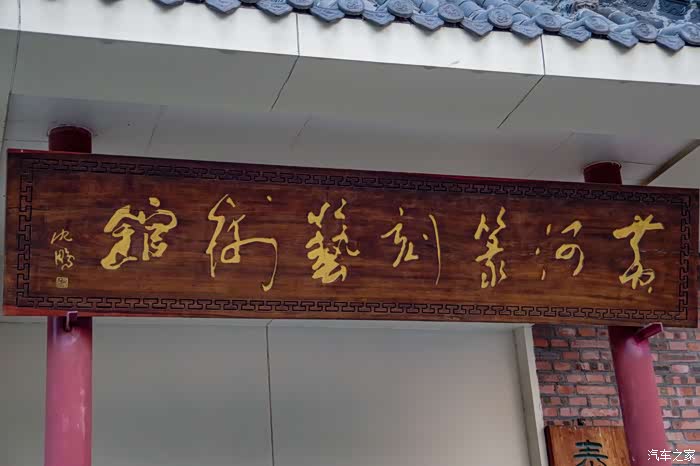 黄河篆刻藝術館
沈鵬
汽车之家